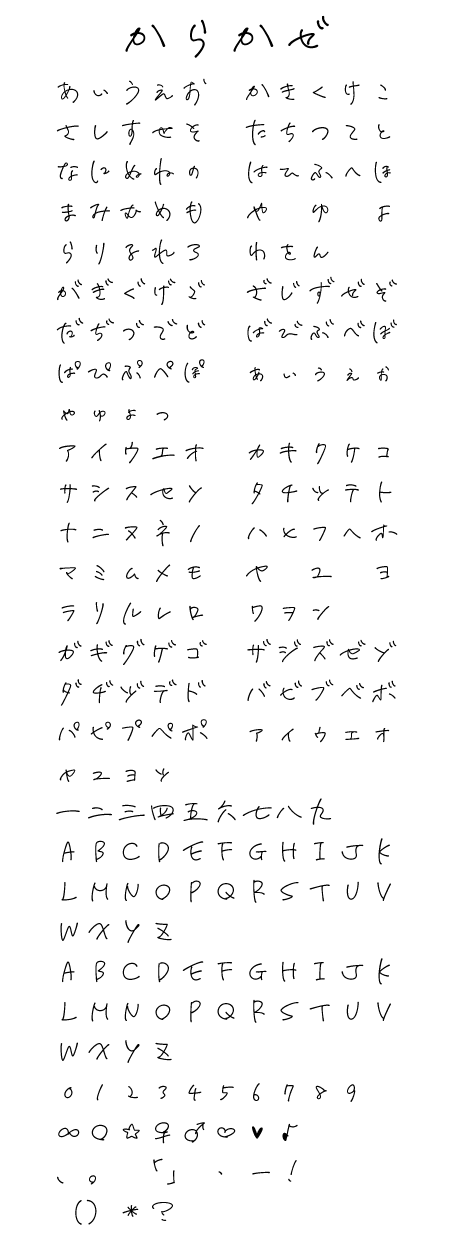 からかぜ
あいうえお かきくけこ
さしすせそ たちつてと
なにぬねの はひふへほ
まみむめも や ゆ よ
らりるれろ わをん
がぎぐげご ざじずぜぞ
だぢづでど ばびぶべぼ
ぱぴぷぺぽ ぁぃぅぇぉ
ゃゅょっ
アイウエオ カキクケコ
サシスセソ タチツテト
ナニヌネノ ハヒフヘホ
マミムメモ ヤ ユ ヨ
ラリルレロ ワヲン
ガギグゲゴ ザジズゼゾ
ダヂヅデド バビブベボ
パピプペポ ァィゥェォ
ャュョッ
一二三四五六七八九
A B C D E F G H I J K
L M N O P Q R S T U V
W X Y Z
A B C D E F G H I J K
L M N O P Q R S T U V
W X Y Z
0 1 2 3 4 5 6 7 8 9
∞ ○ ☆ ♀ ♂ ♡ ♥ ♪
、 。 「」 ・ ー !
() * ?